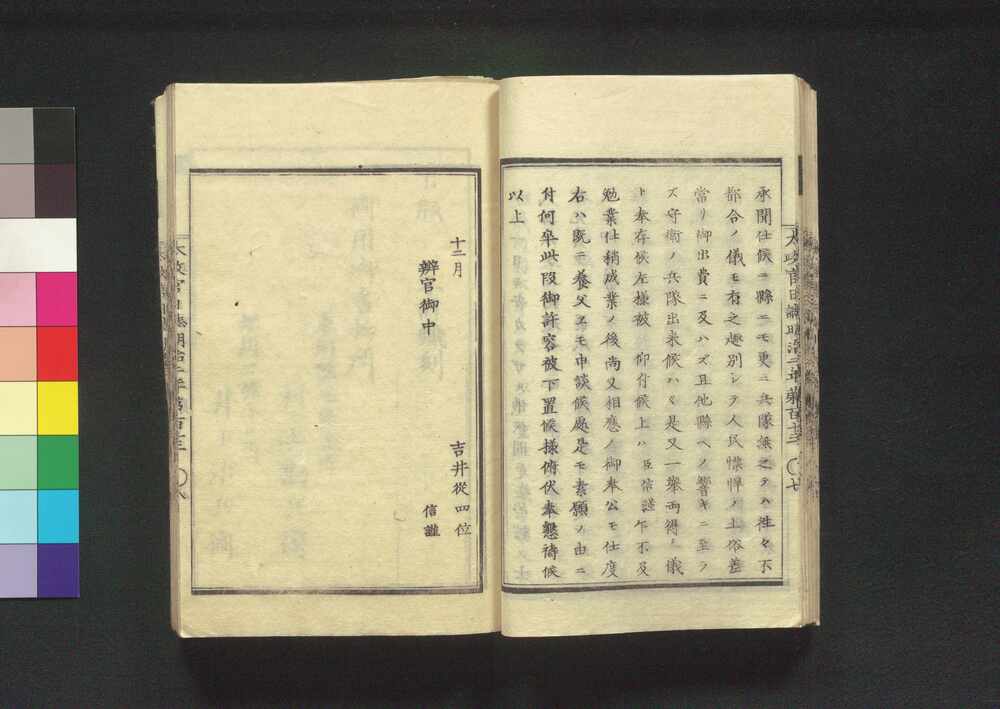 承聞仕候ニ縣ニモ更ニ兵隊無之テハ往々不
都合ノ儀モ有之趣別シテ人民慓悍ノ土俗差
當リ御出費ニ及ハズ且他縣ヘノ響キニ至ラ
ズ守衛ノ兵隊出来候ハヽ是又一擧両得ノ儀
ト奉存候左様被 仰付候上ハ 臣信謹 乍不及
勉業仕稍成業ノ後尚又相應ノ御奉公モ仕度
右ハ既ニ養父エモ申談候處是モ素願ノ由ニ
付何卒此段御許容被下置候様俯伏奉懇祷候
以上
太政官日誌明治三年第百十三 〇七
十二月
吉井從四位
信謹
辨官御中
太政官日誌明治三年第百十三 〇八